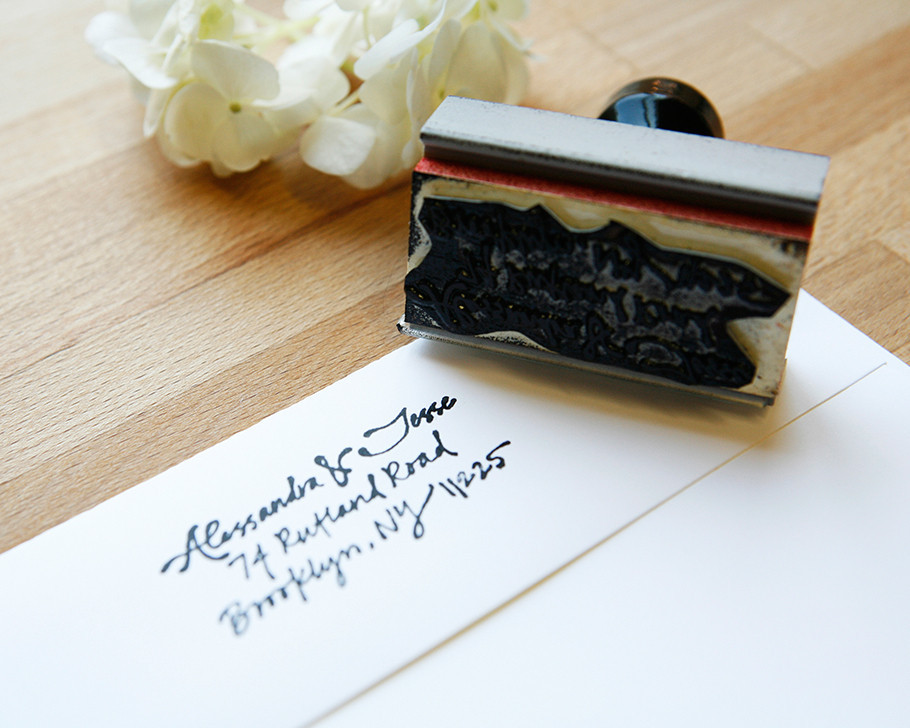 Alessandra & Jesse
74 Rutland Road
Brooklyn, NY 11225